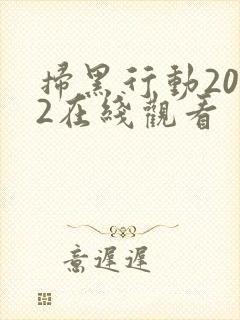 掃黑行動20
2在綫觀看
意遲遲